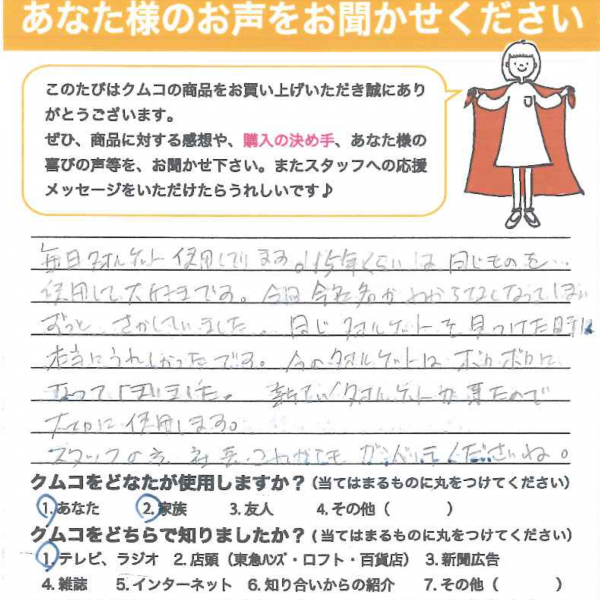 あなた様のお声をお聞かせください
このたびはクムコの商品をお買い上げいただき誠にあり
がとうございます。
ぜひ、商品に対する感想や、購入の決め手、あなた様の
喜びの声等を、お聞かせ下さい。またスタッフへの応援
メッセージをいただけたらうれしいです♪
毎日タオルケット使用しています。15年くらいは同じものを…
使用して大好きです。今回会社名がわからなくなってしまい
ずっとさがしていました。同じタオルケットを見つけた時は
本当にうれしかったです。今のタオルケットはボロボロに
なってしまいました。新しいタオルケットが来たので
大切に使用します。
スタッフの方、社長、これからもがんばってくださいね。
クムコをどなたが使用しますか?(当てはまるものに丸をつけてください)
1.あなた 2.家族 3.友人 4.その他( )
クムコをどちらで知りましたか?(当てはまるものに丸をつけてください)
1.テレビ、ラジオ 2.店頭(東急ハンズ・ロフト・百貨店) 3.新聞広告
4.雑誌 5.インターネット 6.知り合いからの紹介 7.その他( )